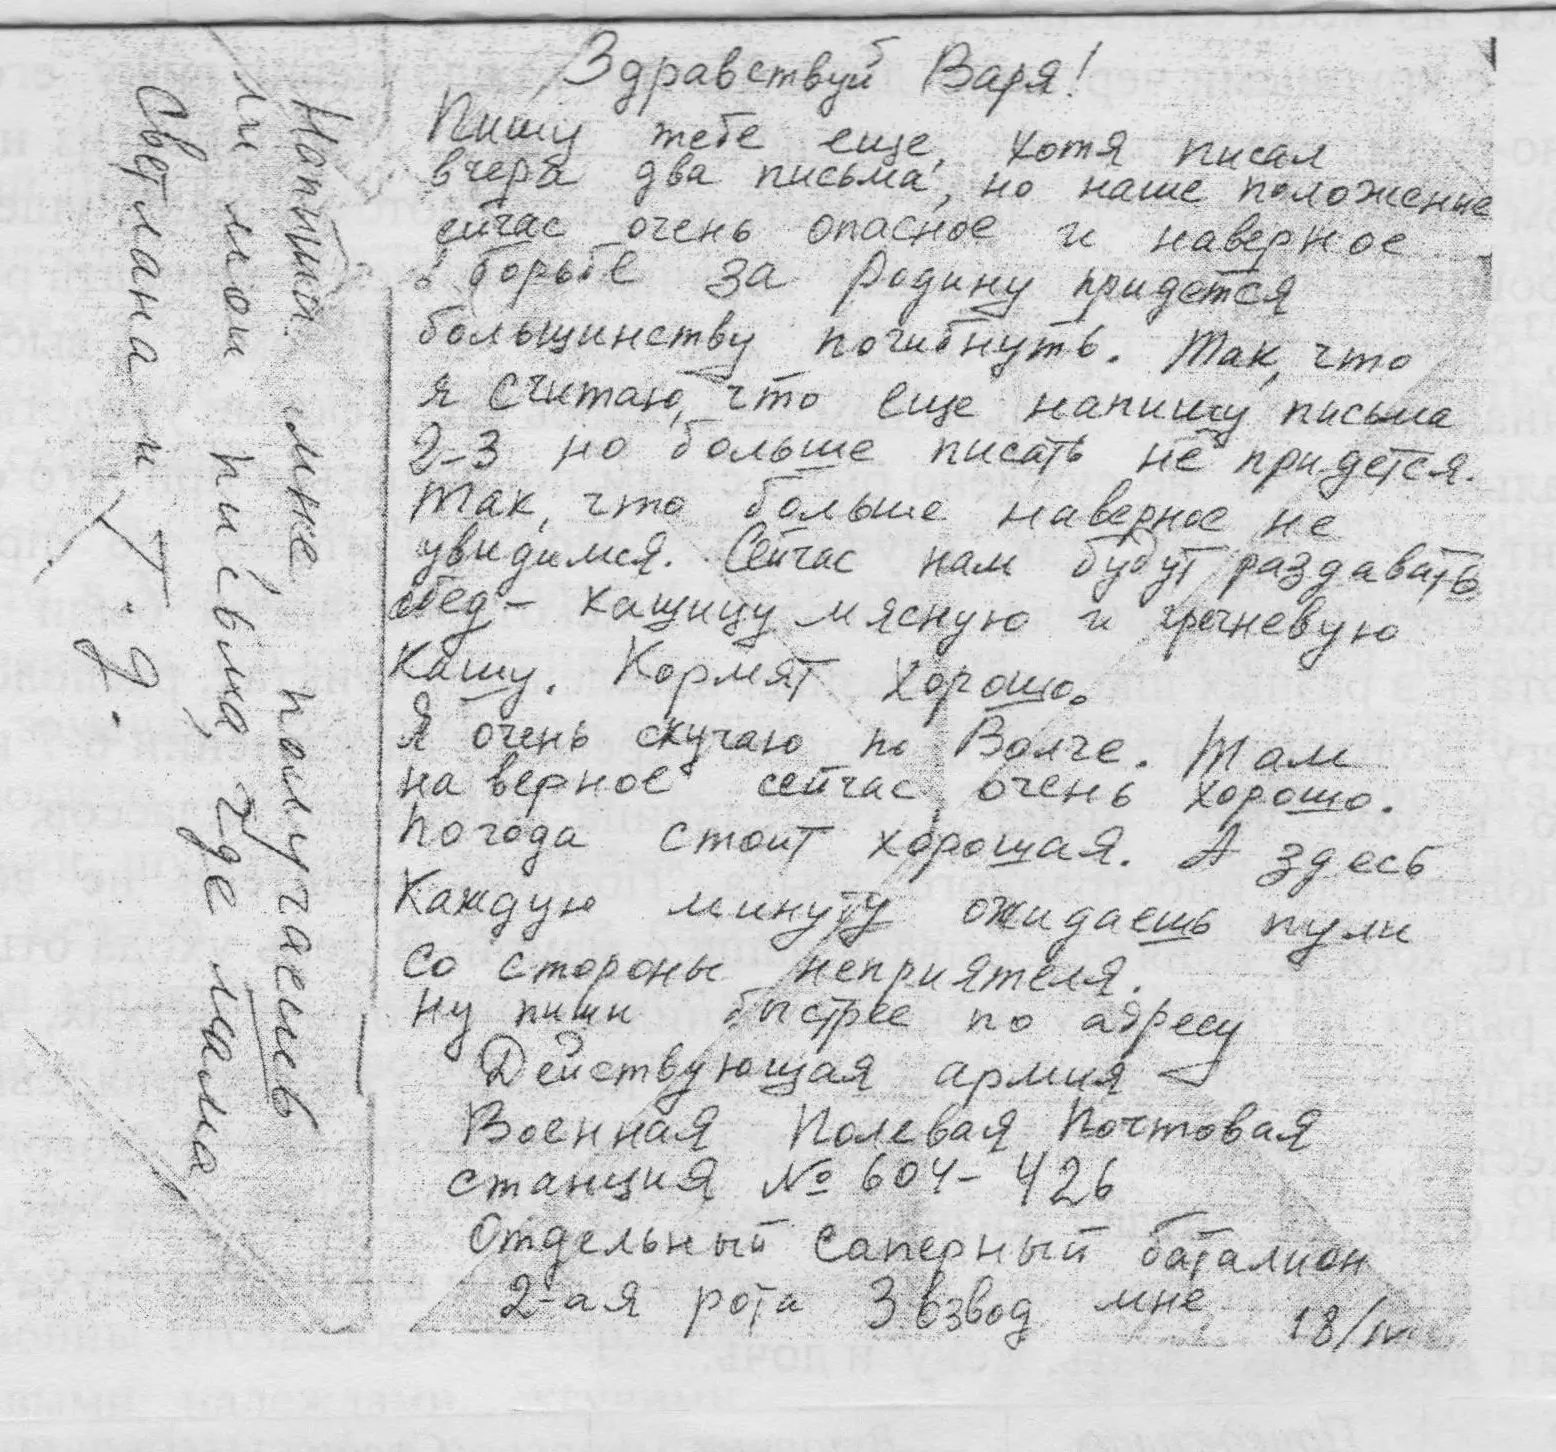 Здравствуй Варя!
Пишу тебе еще, хотя писал
вчера два письма, но наше положение
сейчас очень опасное и наверное
в борьбе за Родину придется
большинству погибнуть. Так, что
я считаю, что еще напишу письма
2-3 но больше писать не придется.
Так, что больше наверное не
увидимся. Сейчас нам будут раздавать
обед - кашицу мясную и гречневую
Кашу. Кормят хорошо.
Я очень скучаю по Волге. Там
наверное сейчас очень хорошо.
Погода стоит хорошая. А здесь
Каждую минуту ожидаешь пули
со стороны неприятеля.
Ну пиши быстрее по адресу
Действующая армия
Военная Полевая Почтовая
станция № 604-426
Отдельный саперный баталион
2-ая рота 3 взвод мне
Напиши мне, получаешь
ли мои письма, где мама
Светлана и Т.д.